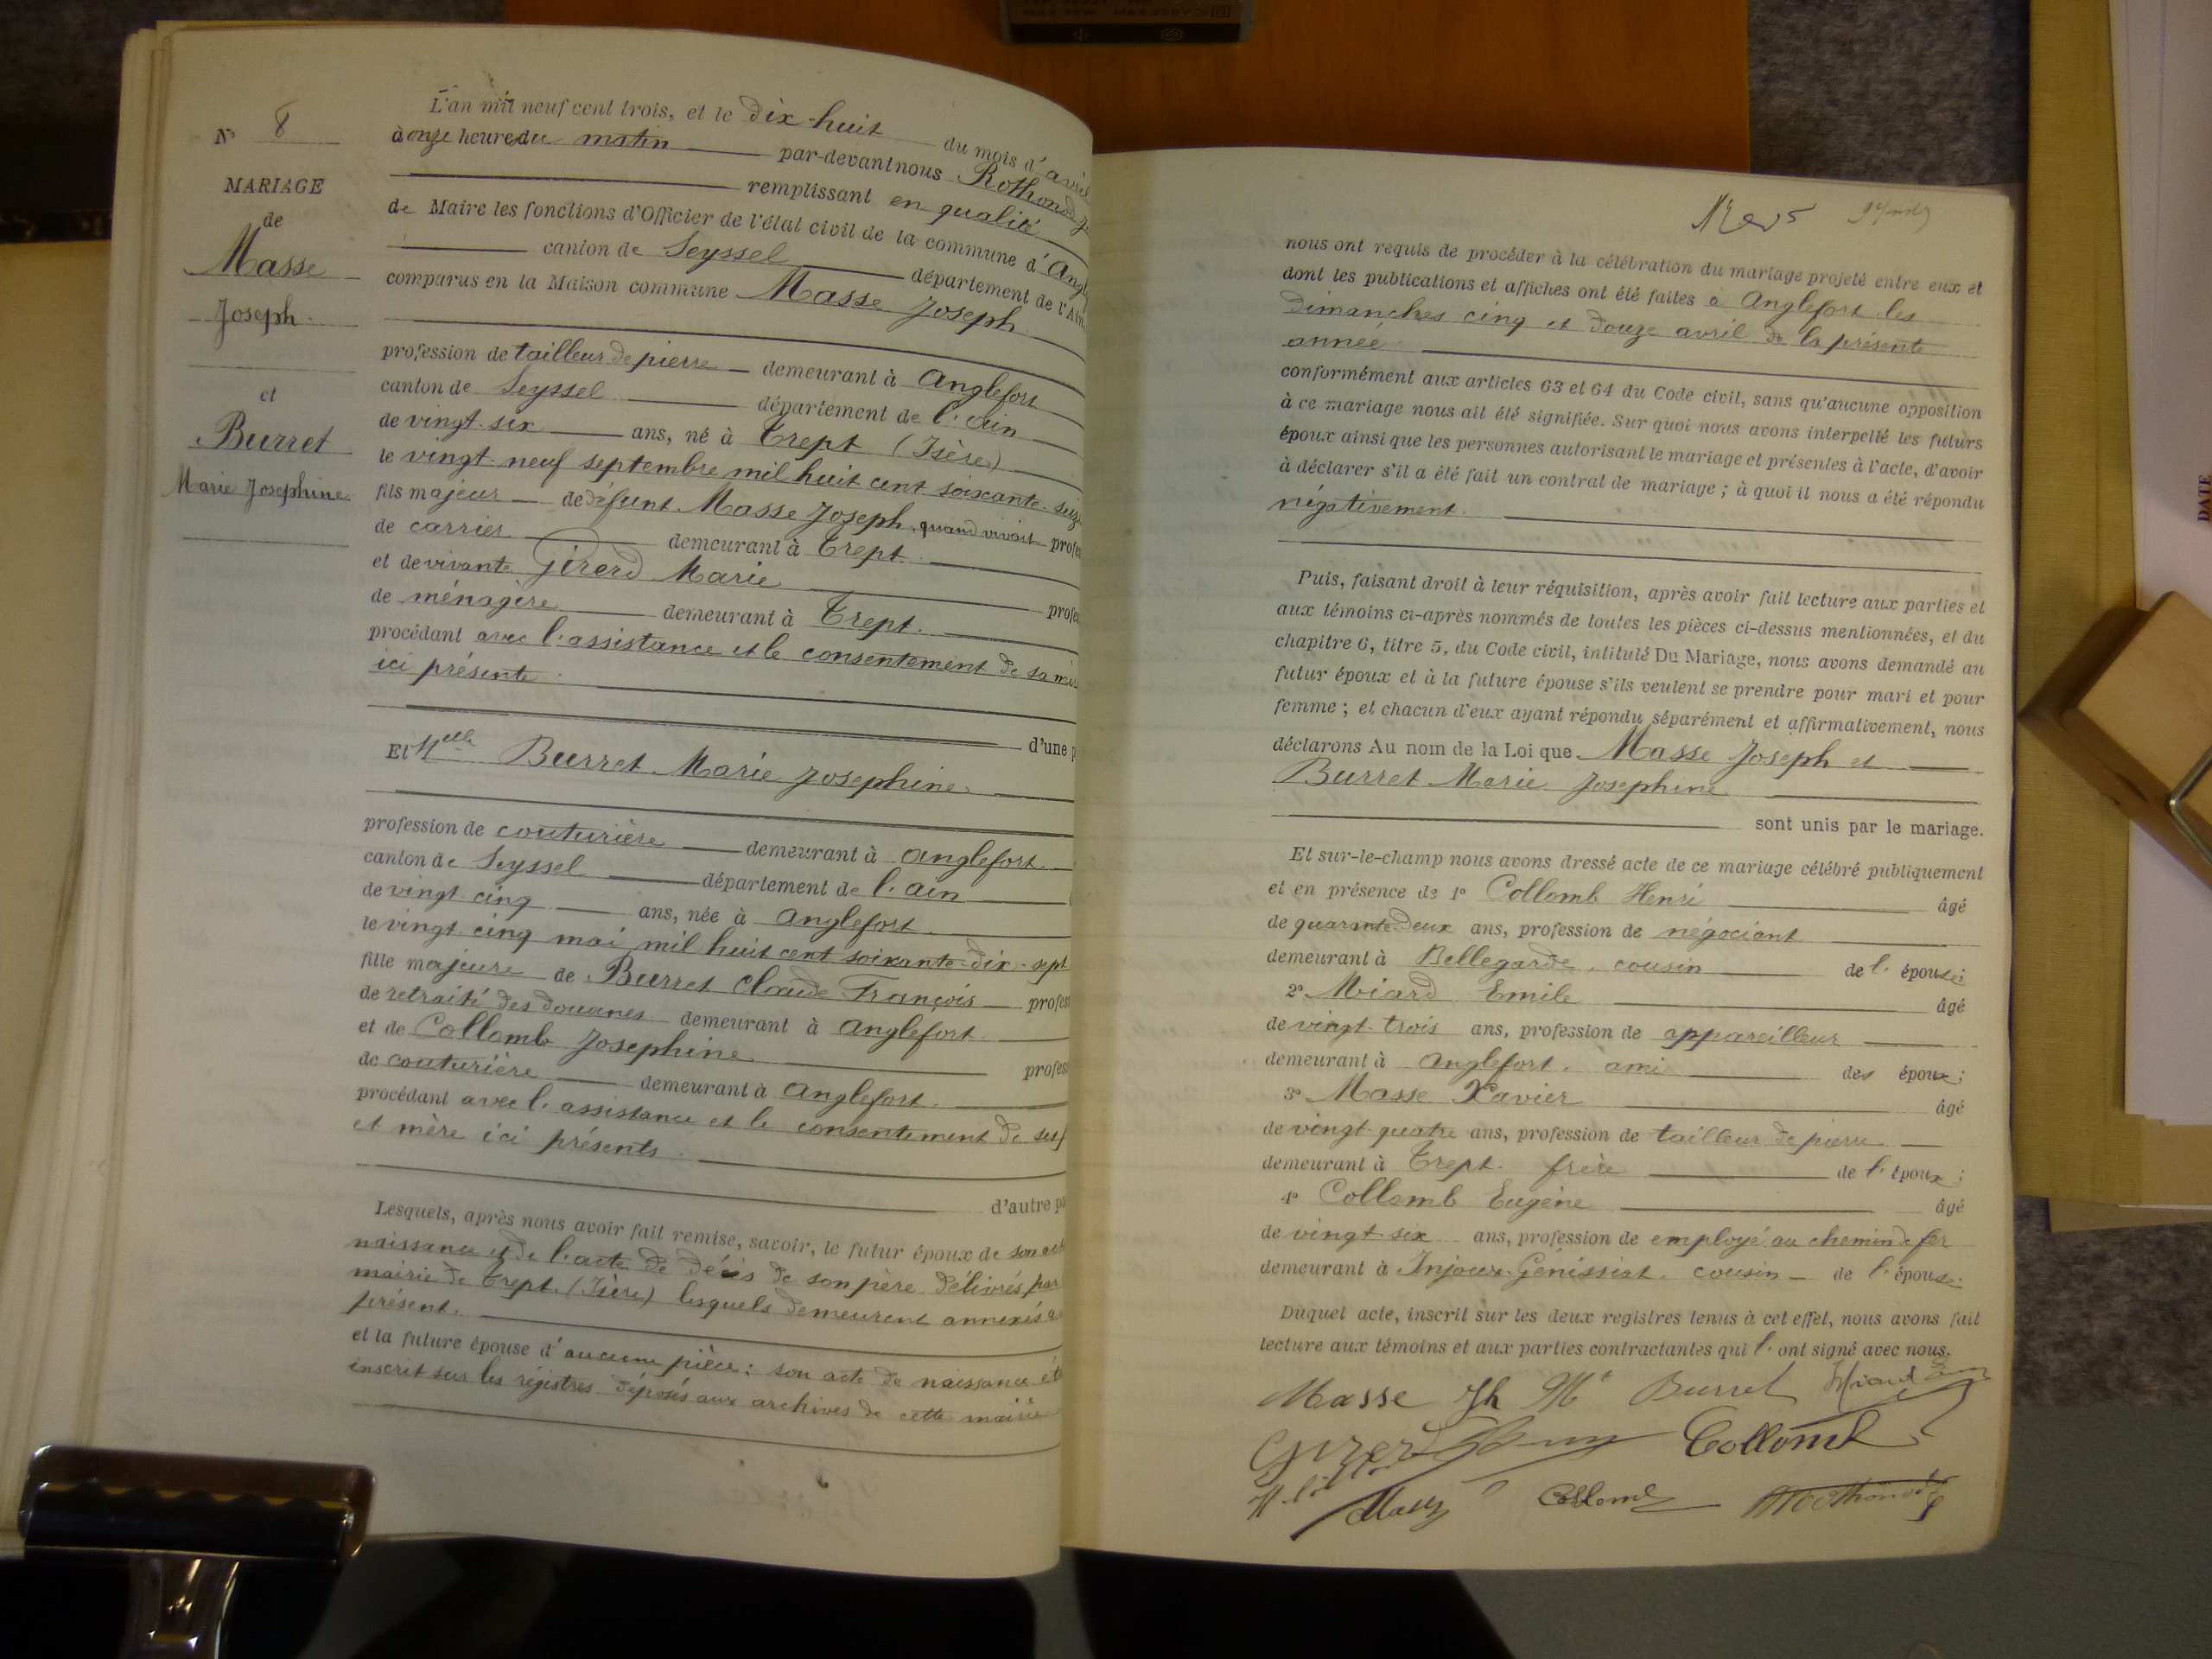 N° 8
MARIAGE
de
Masse
Joseph
et
Burret
Marie Josephine
L'an mil neuf cent trois, et le dix-huit du mois d'avril
à onze heures du matin par-devant nous Rothonod
remplissant en qualité
de Maire les fonctions d'Officier de l'état civil de la commune d'Angl
canton de Seyssel département de l'Ain
comparus en la Maison commune Masse Joseph
profession de tailleur de pierre demeurant à Anglefort
canton de Seyssel département de l'Ain
de vingt-six ans, né à Trept (Isère)
le vingt-neuf septembre mil huit cent soixante-seize
fils majeur de défunt Masse Joseph, quand vivait profes
de carrier demeurant à Trept
et de vivante Girerd Marie profes
de ménagère demeurant à Trept.
procédant avec l'assistance et le consentement de sa mère
ici présente.
d'une p
Et Melle Burret Marie Josephine
profession de couturière demeurant à Anglefort
canton de Seyssel département de l'Ain
de vingt-cinq ans, née à Anglefort
le vingt cinq mai mil huit cent soixante-dix-sept
fille majeure de Burret Claude François profes
de retraité des douanes demeurant à Anglefort
et de Collomb Josephine profes
de couturière demeurant à Anglefort.
procédant avec l'assistance et le consentement de ses p
et mère ici présents.
d'autre pa
Lesquels, après nous avoir fait remise, savoir, le futur époux de son acte
naissance et de l'acte de décès de son père délivrés par
mairie de Trept (Isère) lesquels demeurent annexés a
présent.
et la future épouse d'aucune pièce: son acte de naissance ét
inscrit sur les régistres déposés aux archives de cette mairie
nous ont requis de procéder à la célébration du mariage projeté entre eux et
dont les publications et affiches ont été faites à Anglefort les
dimanches cinq et douze avril de la présente
année
conformément aux articles 63 et 64 du Code civil, sans qu'aucune opposition
à ce mariage nous ait été signifiée. Sur quoi nous avons interpellé les futurs
époux ainsi que les personnes autorisant le mariage et présentes à l'acte, d'avoir
à déclarer s'il a été fait un contrat de mariage; à quoi il nous a été répondu
négativement.
Puis, faisant droit à leur réquisition, après avoir fait lecture aux parties et
aux témoins ci-après nommés de toutes les pièces ci-dessus mentionnées, et du
chapitre 6, titre 5, du Code civil, intitulé Du Mariage, nous avons demandé au
futur époux et à la future épouse s'ils veulent se prendre pour mari et pour
femme; et chacun d'eux ayant répondu séparément et affirmativement, nous
déclarons Au nom de la Loi que Masse Joseph et
Burret Marie Josephine
sont unis par le mariage.
Et sur-le-champ nous avons dressé acte de ce mariage célébré publiquement
et en présence de 1° Collomb Henri âgé
de quarante-deux ans, profession de négociant
demeurant à Bellegarde, cousin de l'épouse;
2° Miard Emile âgé
de vingt-trois ans, profession de appareilleur
demeurant à Anglefort, ami des époux;
3° Masse Xavier âgé
de vingt-quatre ans, profession de tailleur de pierre
demeurant à Trept. frère de l'époux;
4° Collomb Eugène âgé
de vingt-six ans, profession de employé au chemin de fer
demeurant à Injoux-Génissiat, cousin de l'épouse;
Duquel acte, inscrit sur les deux registres tenus à cet effet, nous avons fait
lecture aux témoins et aux parties contractantes qui l'ont signé avec nous.
Masse Jh Me Burret Miard
Girerd Collomb
Masse Collomb Rothonod
DATE